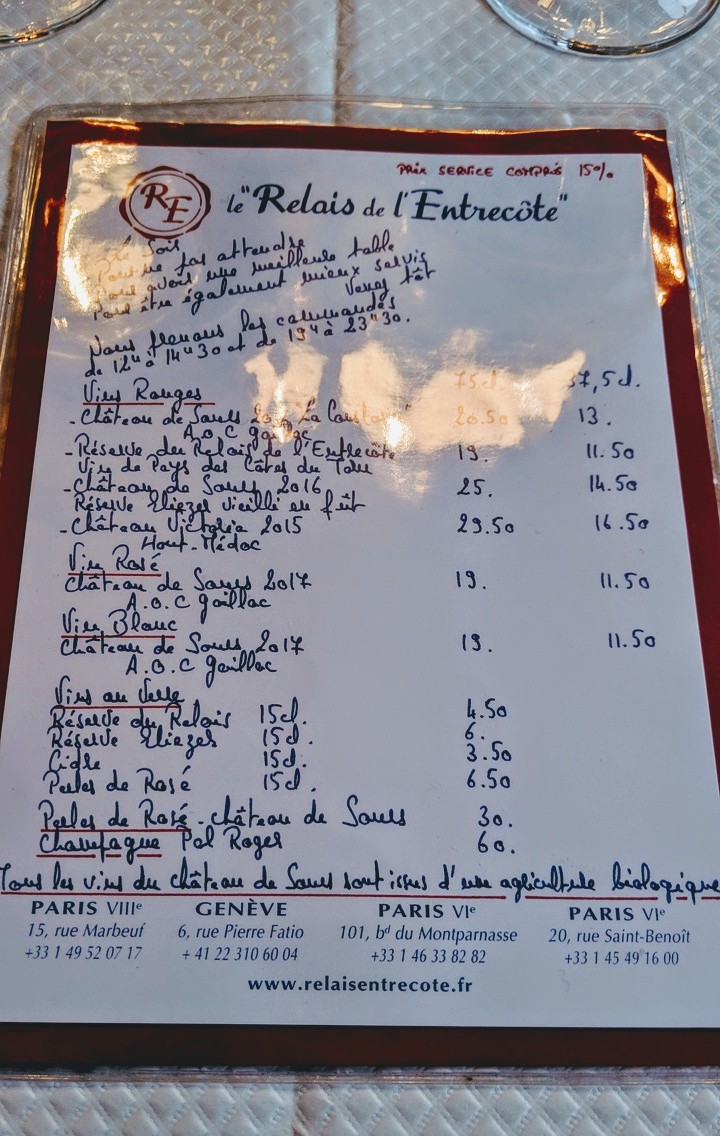 PRIX SERVICE COMPRIS 15%
RE le "Relais de l'Entrecôte"
Le Soir
Pour ne pas attendre
Pour avoir une meilleure table
Pour être également mieux servis
Venez tôt
Nous prenons les commandes
de 12H à 14H30 et de 19H à 23H30.
75cl. 37,5cl.
Vins Rouges
- Château de Saurs "La Coustou" 20.50 13.
A.O.C gaillac
- Réserve du Relais de l'Entrecôte 19. 11.50
Vin de Pays des Côtes du Tarn
- Château de Saurs 2016 25. 14.50
Réserve Eliezer vieilli en fût
- Château Victoria 2015 29.50 16.50
Haut-Médoc
Vin Rosé
Château de Saurs 2017 19. 11.50
A.O.C gaillac
Vin Blanc
Château de Saurs 2017 19. 11.50
A.O.C gaillac
Vins au Verre
Réserve du Relais 15cl. 4.50
Réserve Eliezer 15cl. 6.
Cidre 15cl. 3.50
Perles de Rosé 15cl. 6.50
Perles de Rosé - château de Saurs 30.
Champagne Pol Roger 60.
Tous les vins du château de Saurs sont issus d'une agriculture biologique
PARIS VIIIe GENÈVE PARIS VIe PARIS VIe
15, rue Marbeuf 6, rue Pierre Fatio 101, bd du Montparnasse 20, rue Saint-Benoît
+33 1 49 52 07 17 + 41 22 310 60 04 +33 1 46 33 82 82 +33 1 45 49 16 00
www.relaisentrecote.fr